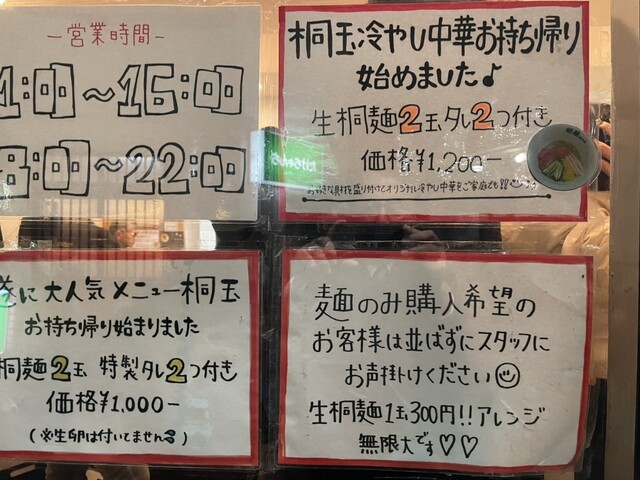 -営業時間-
1:00~16:00
8:00~22:00
桐玉冷やし中華お持ち帰り
始めました♪
生桐麺2玉タレ2つ付き
価格¥1,200-
お好きな具材を盛り付けてオリジナル冷やし中華をご家庭でも!!
遂に大人気メニュー桐玉
お持ち帰り始まりました
桐麺2玉 特製タレ2つ付き
価格¥1,000-
(※生卵は付いてません)
麺のみ購入希望の
お客様は並ばずにスタッフに
お声掛けください
生桐麺1玉300円!!アレンジ
無限大です♡♡